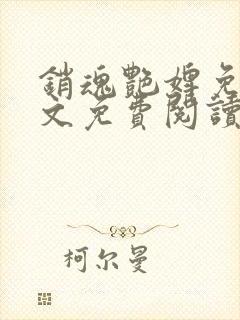 銷魂艷婢免
文免費閱讀
柯尔曼